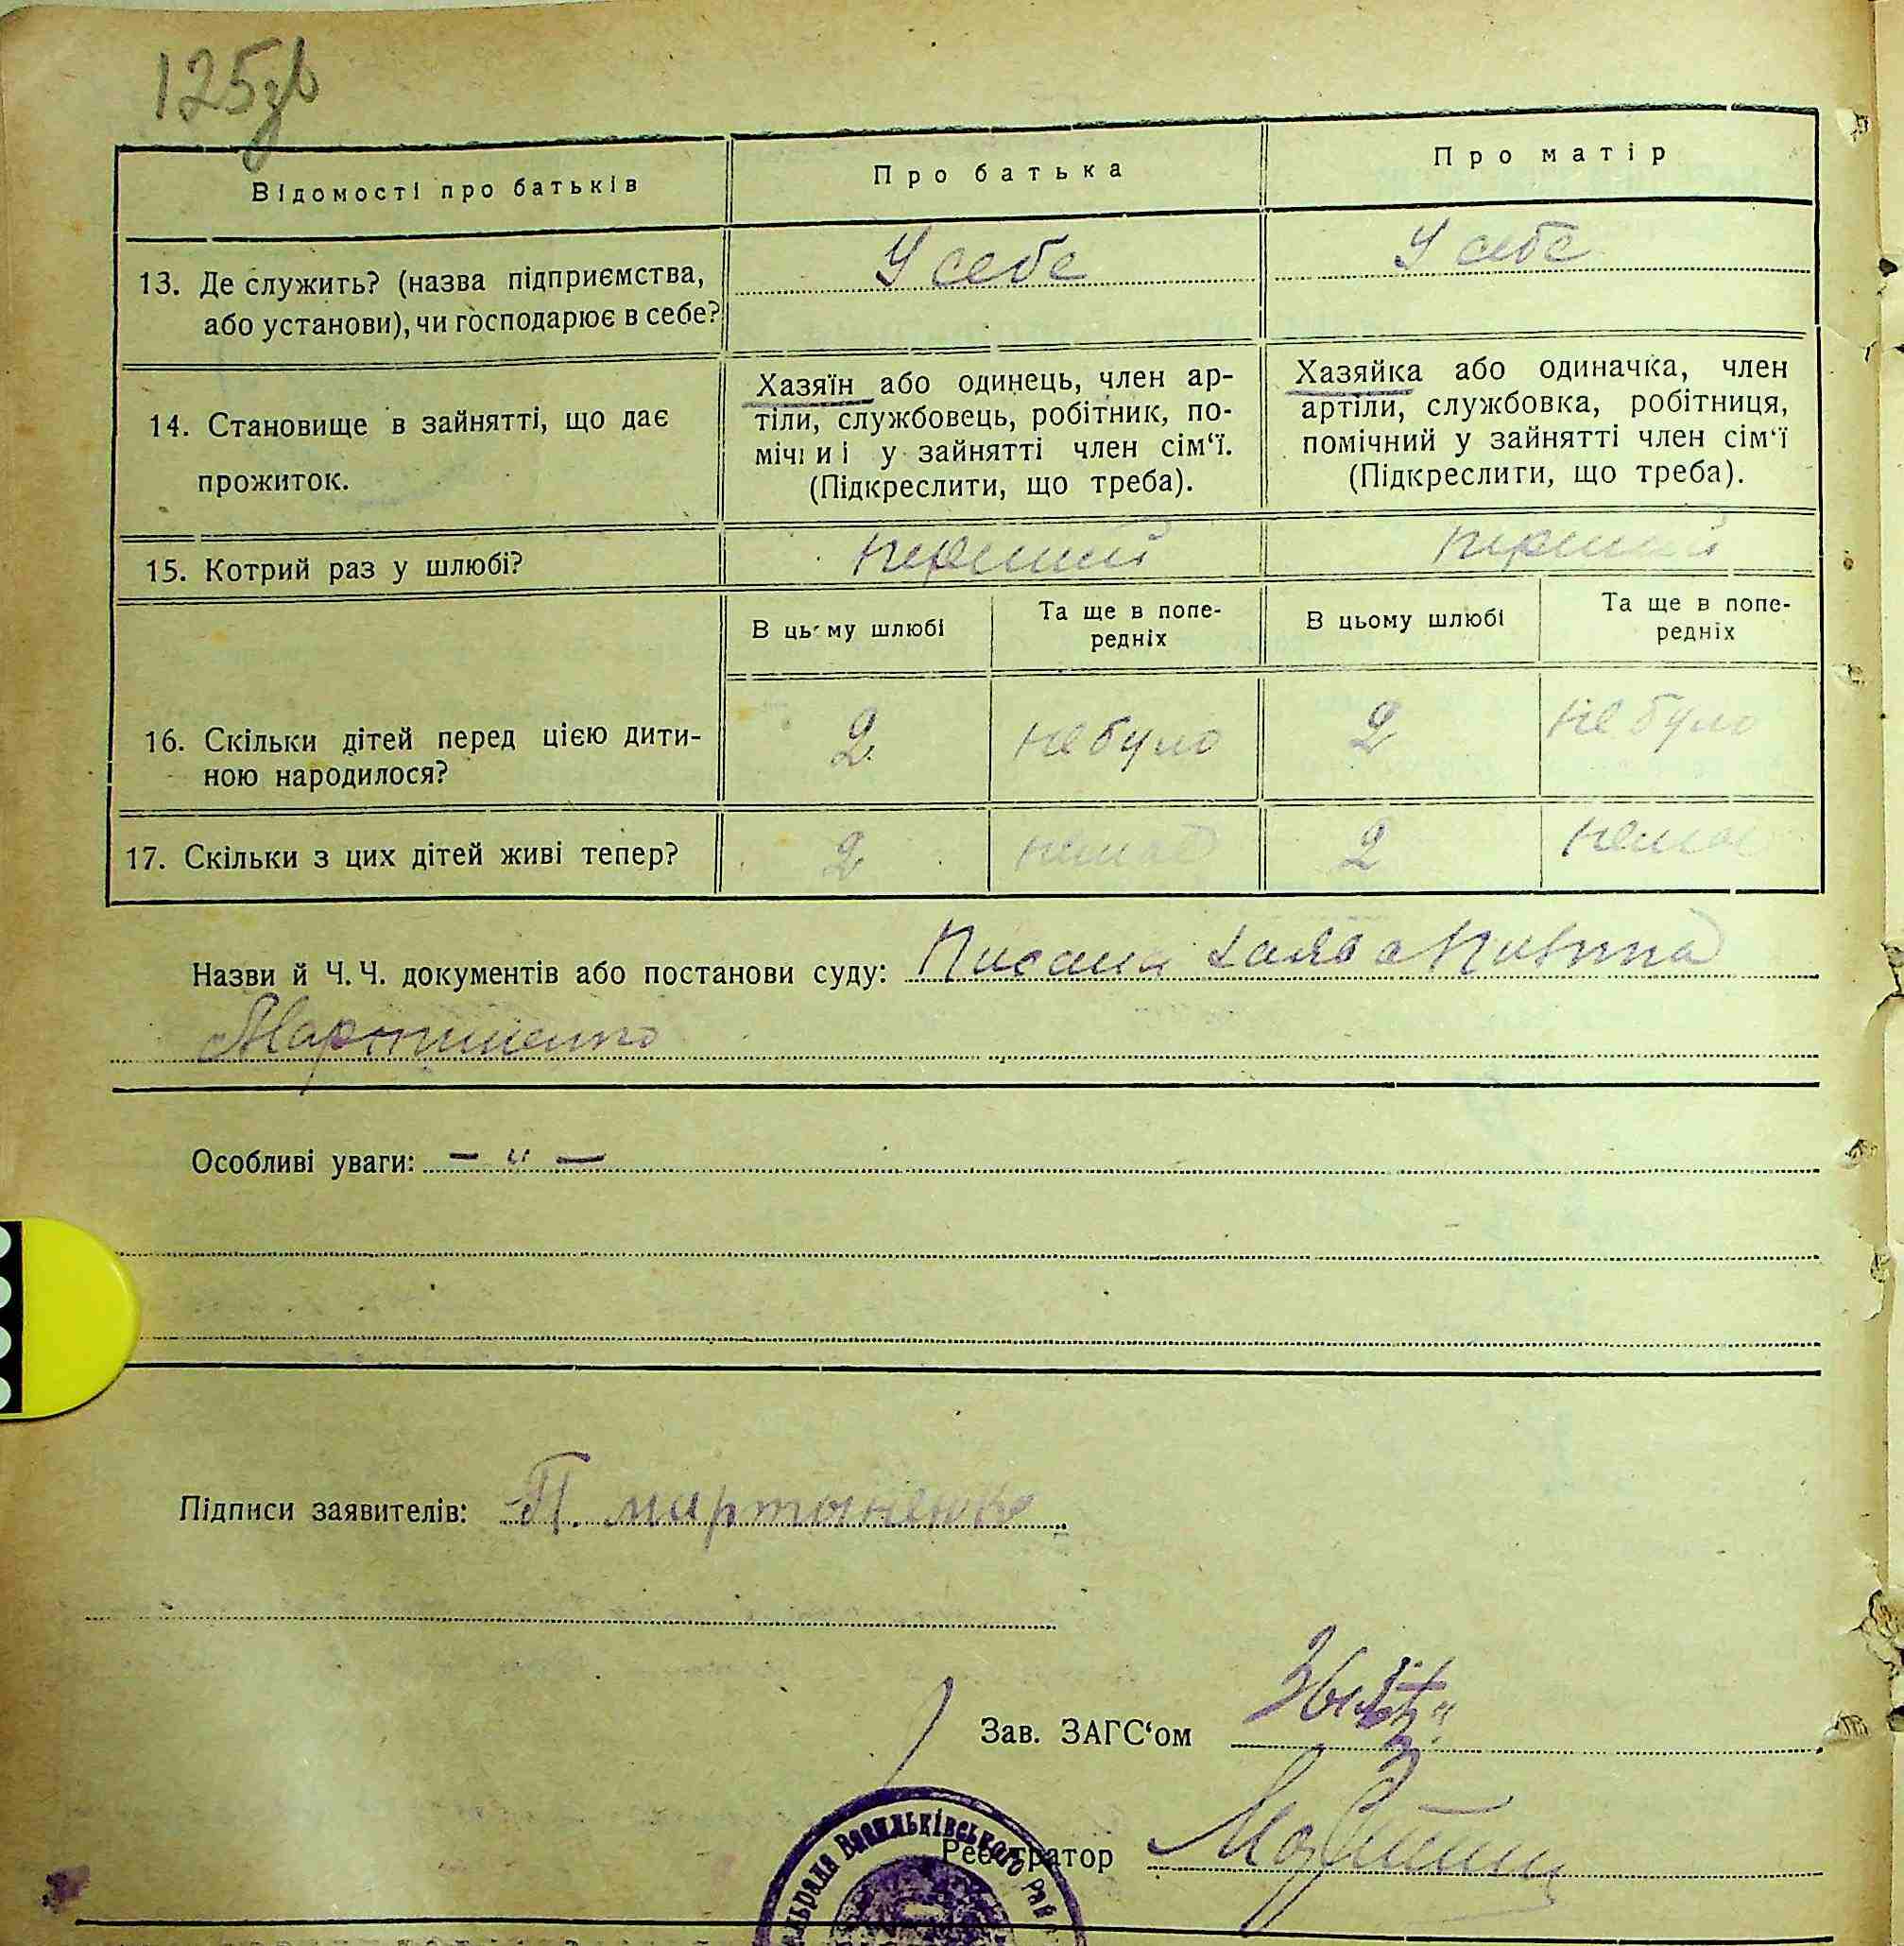 125зв
Відомості про батьків
Про батька
Про матір
13. Де служить? (назва підприємства,
або установи), чи господарює в себе?
У себе
У себе
14. Становище в зайнятті, що дає
прожиток.
Хазяїн або одинець, член ар-
тіли, службовець, робітник, по-
мічний у зайнятті член сім‘ї.
(Підкреслити, що треба).
Хазяйка або одиначка, член
артіли, службовка, робітниця,
помічний у зайнятті член сім‘ї
(Підкреслити, що треба).
15. Котрий раз у шлюбі?
перший
перший
В цьому шлюбі
Та ще в попе-
редніх
В цьому шлюбі
Та ще в попе-
редніх
16. Скільки дітей перед цією дити-
ною народилося?
2
не було
2
не було
17. Скільки з цих дітей живі тепер?
2
немає
2
немає
Назви й Ч. Ч. документів або постанови суду:
Особливі уваги: – " –
Підписи заявителів: П. мартыненко
Зав. ЗАГС‘ом
Реєстратор
Васильківського Рай